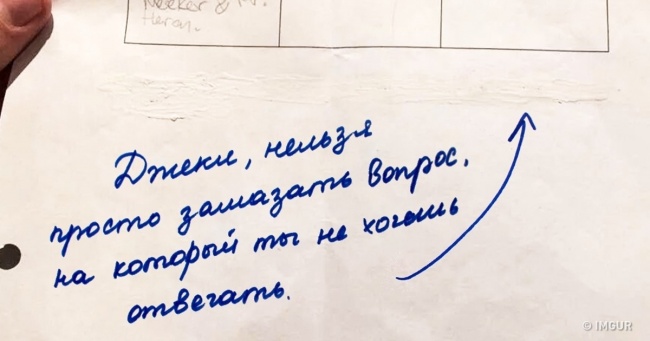 Heron.
Джеки, нельзя
просто замазать вопрос,
на который ты не хочешь
отвечать.
© IMGUR